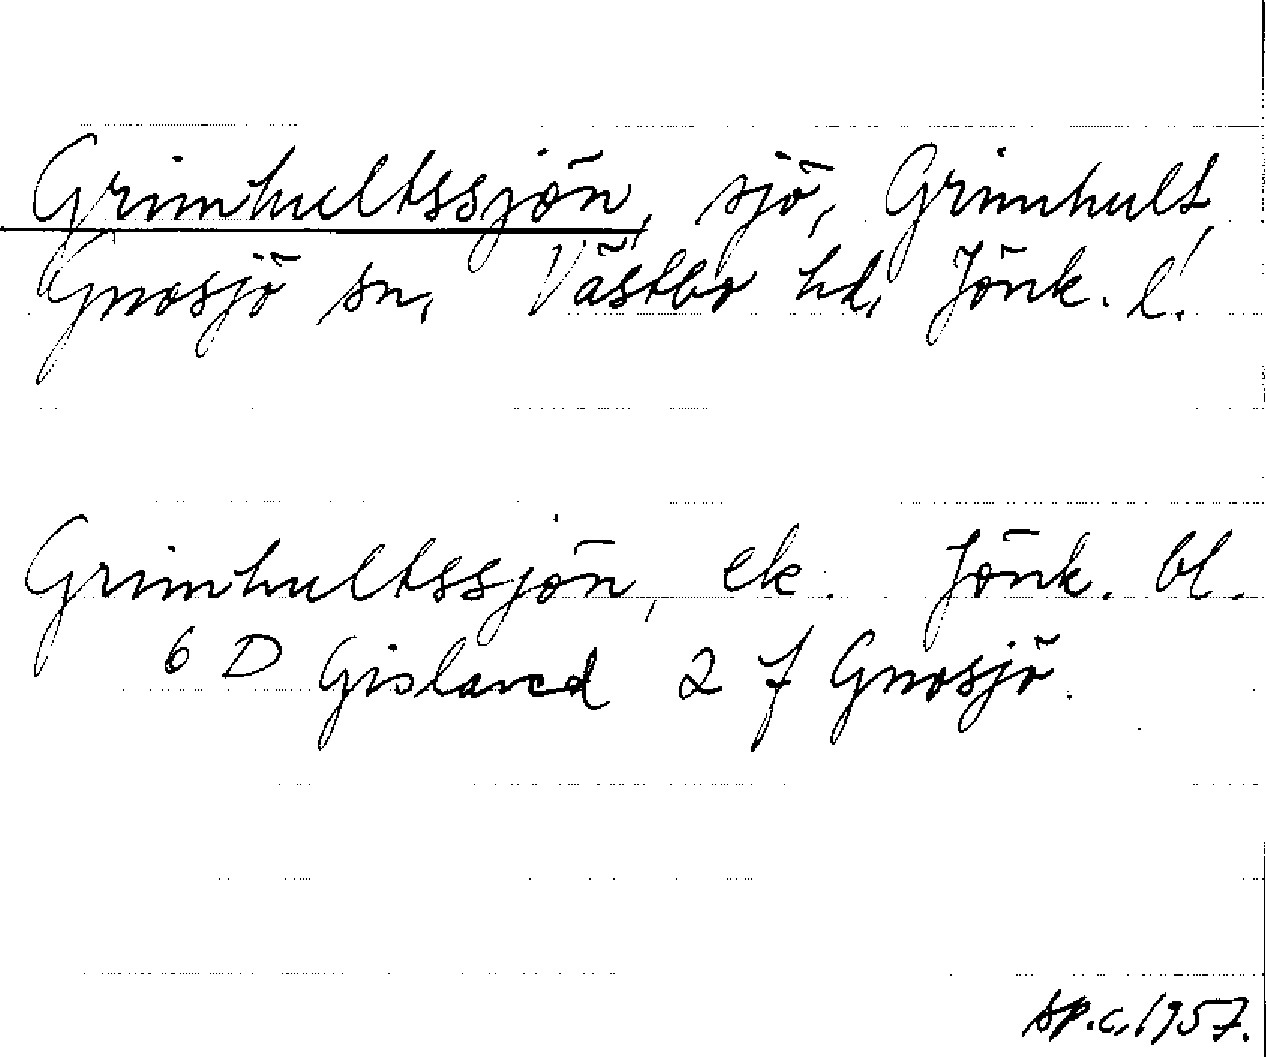 Grimhultssjön, sjö, Grimhult,
Gnosjö sn, Västbo hd, Jönk. l.
Grimhultssjön, ek. Jönk. bl.
6 D Gislaved 2 f Gnosjö.
sp.c. 1957.